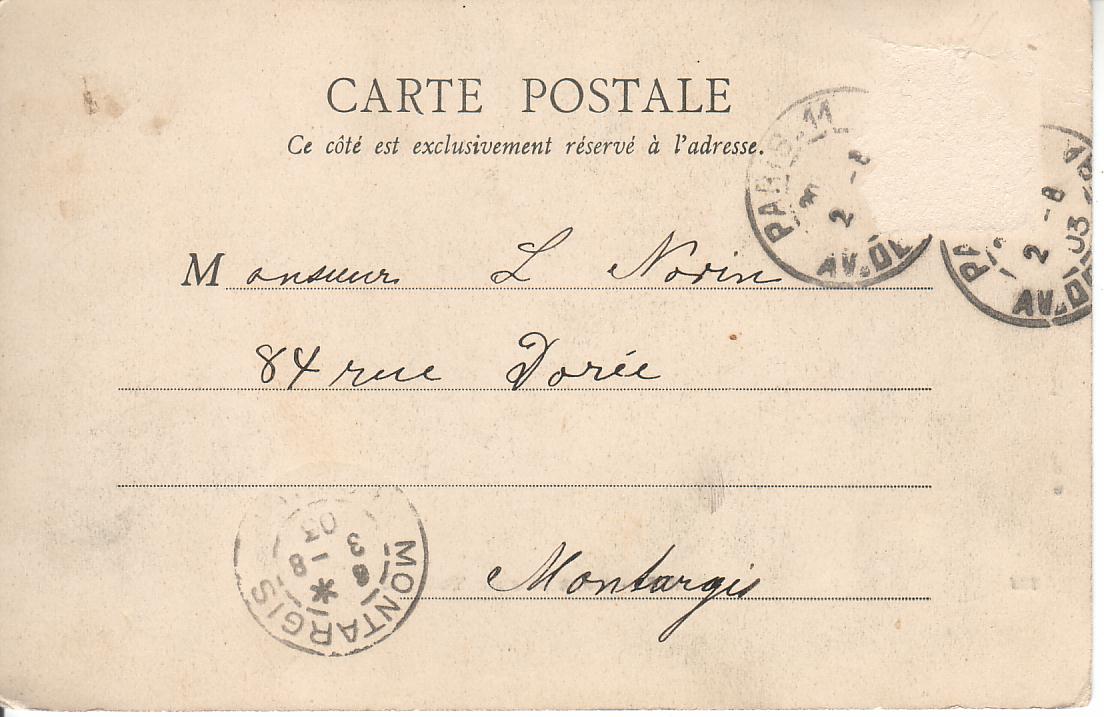 CARTE POSTALE
Ce côté est exclusivement réservé à l'adresse.
PARIS-11
2 -8
AV. DE
PA
2 -8
03
AV. DE
Monsieur L Norin
84 rue Dorée
Montargis
MONTARGIS
8
3 -8
03